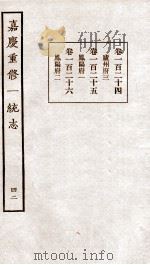 嘉慶重修一統志
四二
卷一百二十四
廬州府三
卷一百二十五
鳳陽府一
卷一百二十六
鳳陽府二